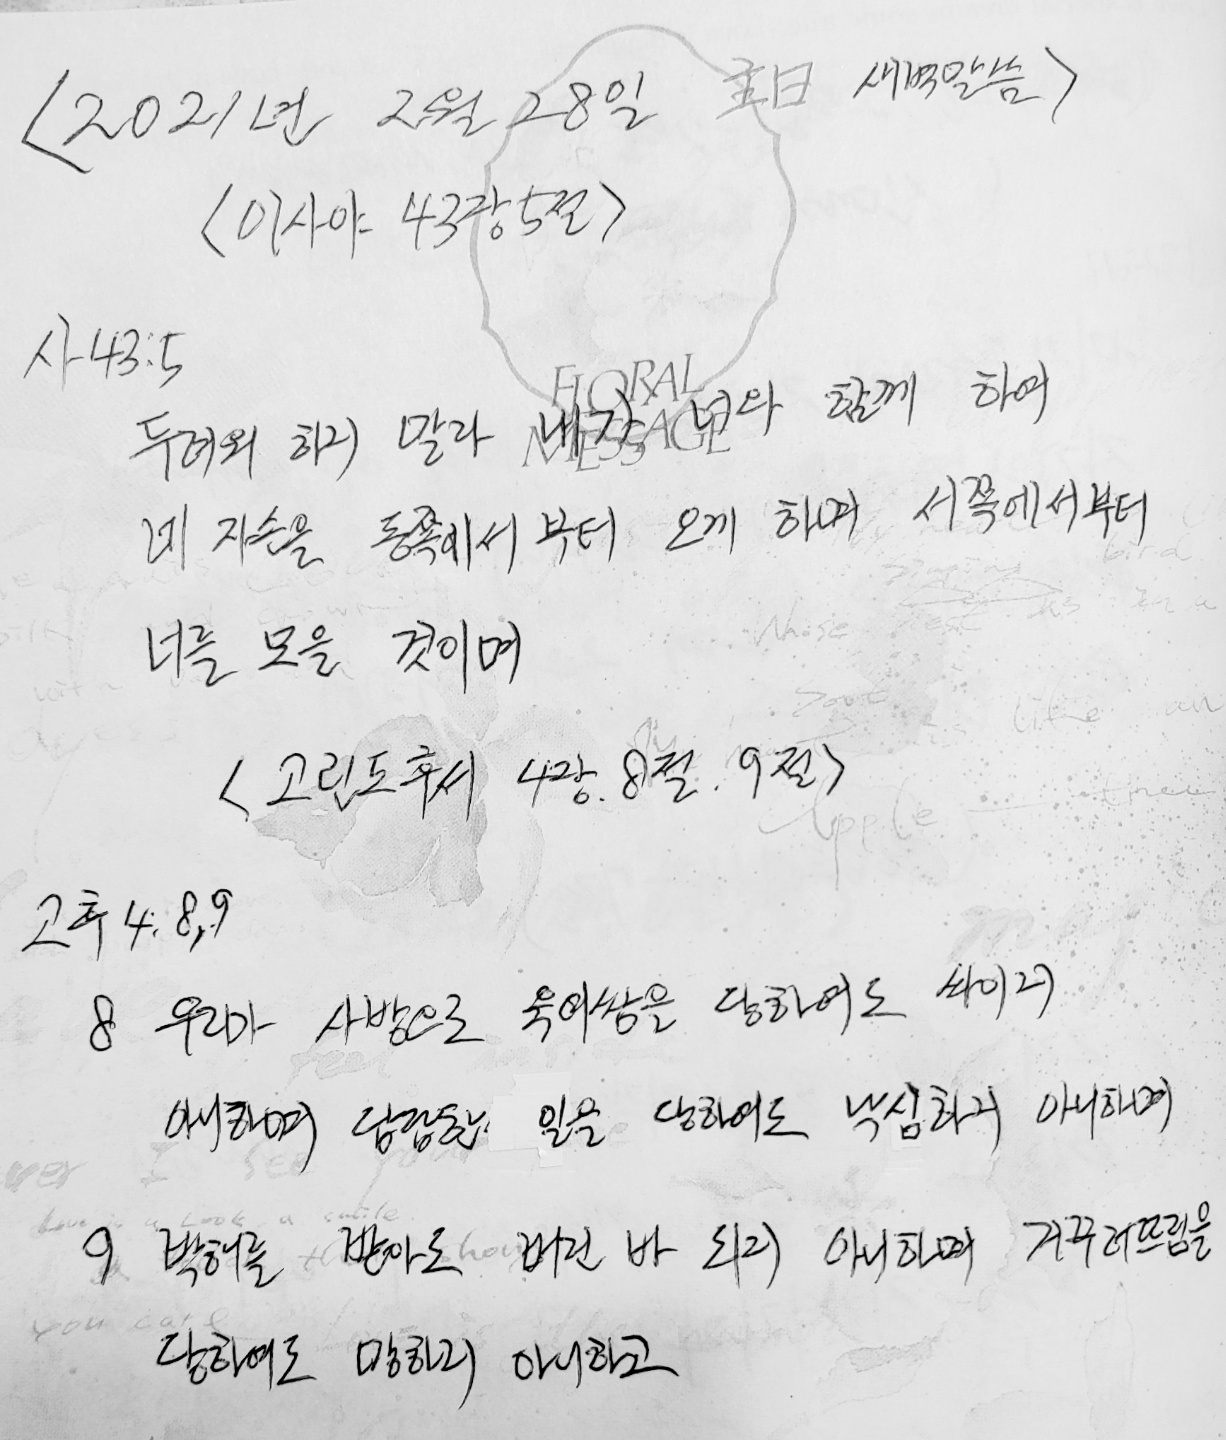 <2021년 2월 28일 主日 새벽말씀>
<이사야 43장 5절>
사 43:5
FLORAL
MESSAGE
두려워 하지 말라 내가 너와 함께 하여
네 자손을 동쪽에서부터 오게 하며 서쪽에서부터
너를 모을 것이며
<고린도후서 4장. 8절. 9절>
고후 4: 8,9
8 우리가 사방으로 욱여쌈을 당하여도 싸이지
아니하며 답답한 일을 당하여도 낙심하지 아니하며
9 박해를 받아도 버린 바 되지 아니하며 거꾸러뜨림을
당하여도 망하지 아니하고